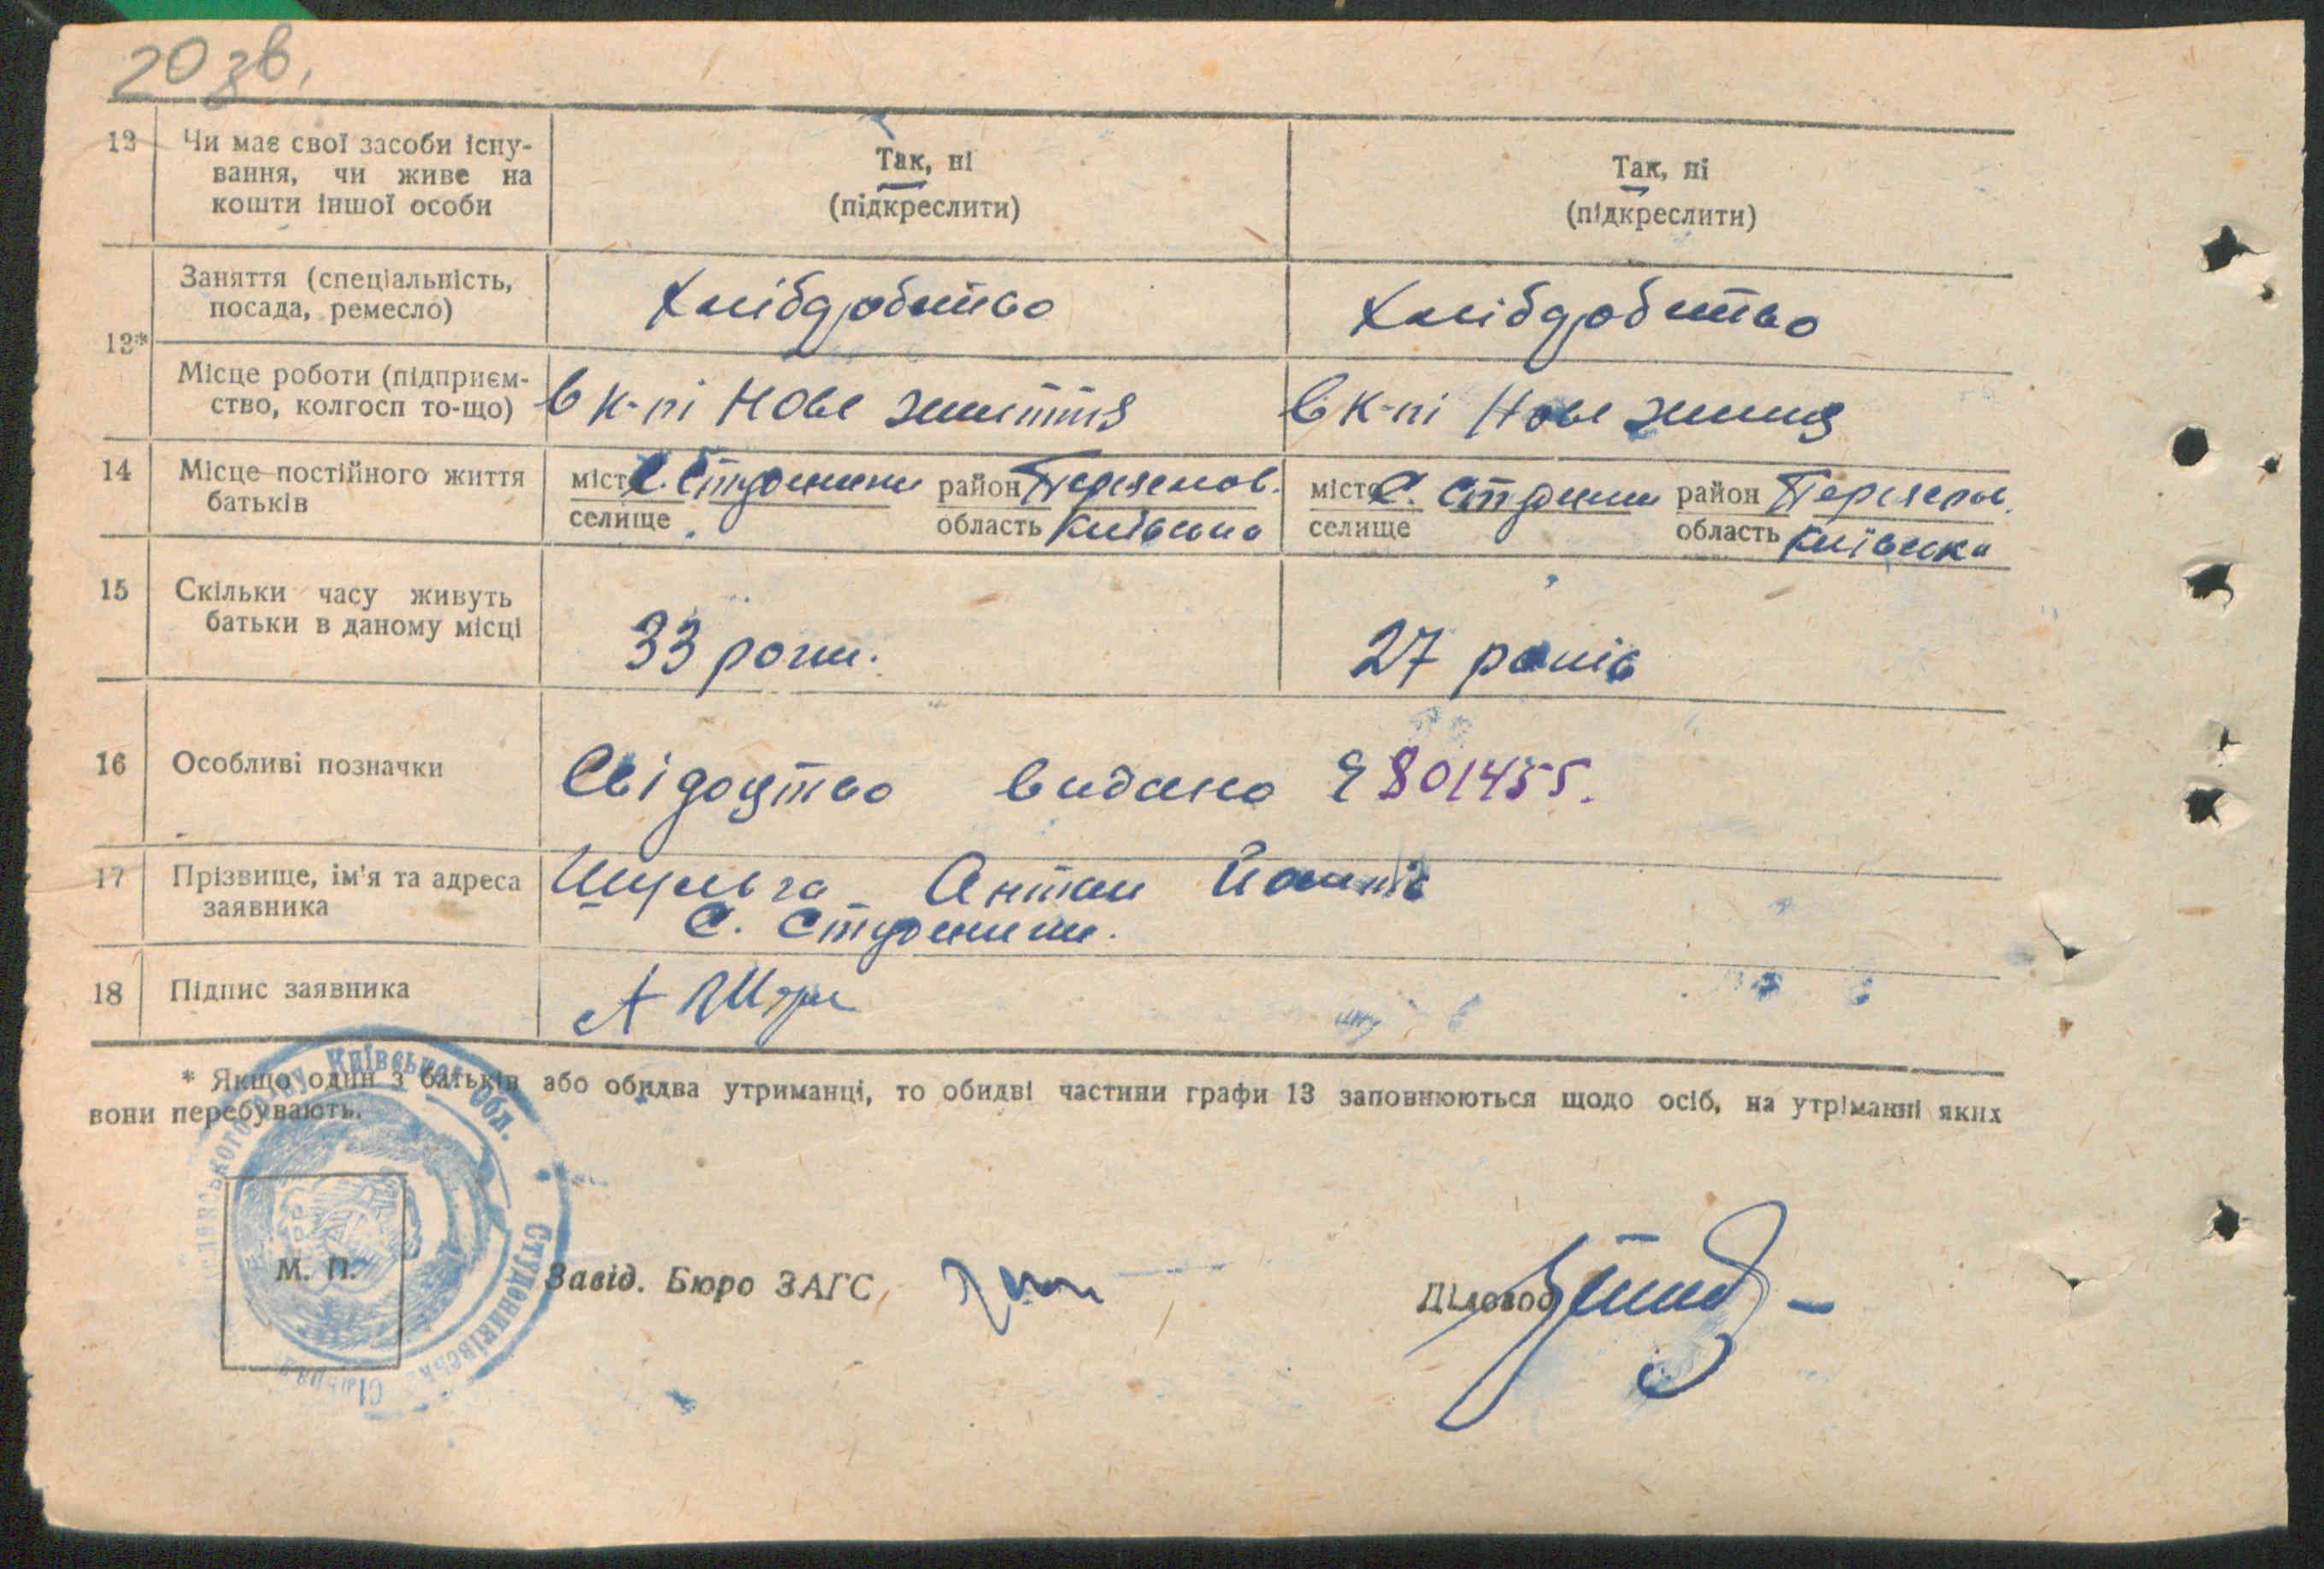 20 зв.
12 Чи має свої засоби існу-
вання, чи живе на
кошти іншої особи
Так, ні
(підкреслити)
Так, ні
(підкреслити)
13*
Заняття (спеціальність,
посада, ремесло)
Хлібдробство
Хлібдробство
Місце роботи (підприєм-
ство, колгосп то-що)
в к-пі Нове життя
в к-пі Нове життя
14 Місце постійного життя
батьків
місто с. Студеники район
селище область Київська
місто с. Студеники район
селище область Київська
15 Скільки часу живуть
батьки в даному місці
33 роки.
27 років
16 Особливі позначки
Свідоцтво видано 801455.
17 Прізвище, ім'я та адреса
заявника
Шульга Антон
с. Студеники.
18 Підпис заявника
* Якщо один з батьків або обидва утриманці, то обидві частини графи 13 заповнюються щодо осіб, на утріманні яких
вони перебувають.
Київської Обл.
Студениківська
М. П.
Завід. Бюро ЗАГС
Діловод